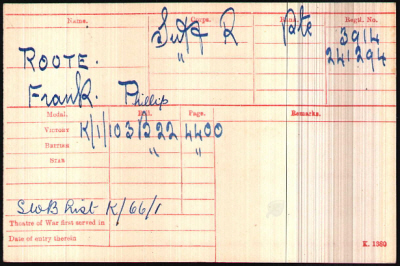 Name. Corps. Rank. Regtl. No.
Suff R Pte 3914
ROOTE. " 241294
Frank. Phillip
Medal. Roll. Page. Remarks.
VICTORY K/1/103B22 4400
BRITISH " "
STAR
SWB List K/66/1
Theatre of War first served in
Date of entry therein
K. 1380